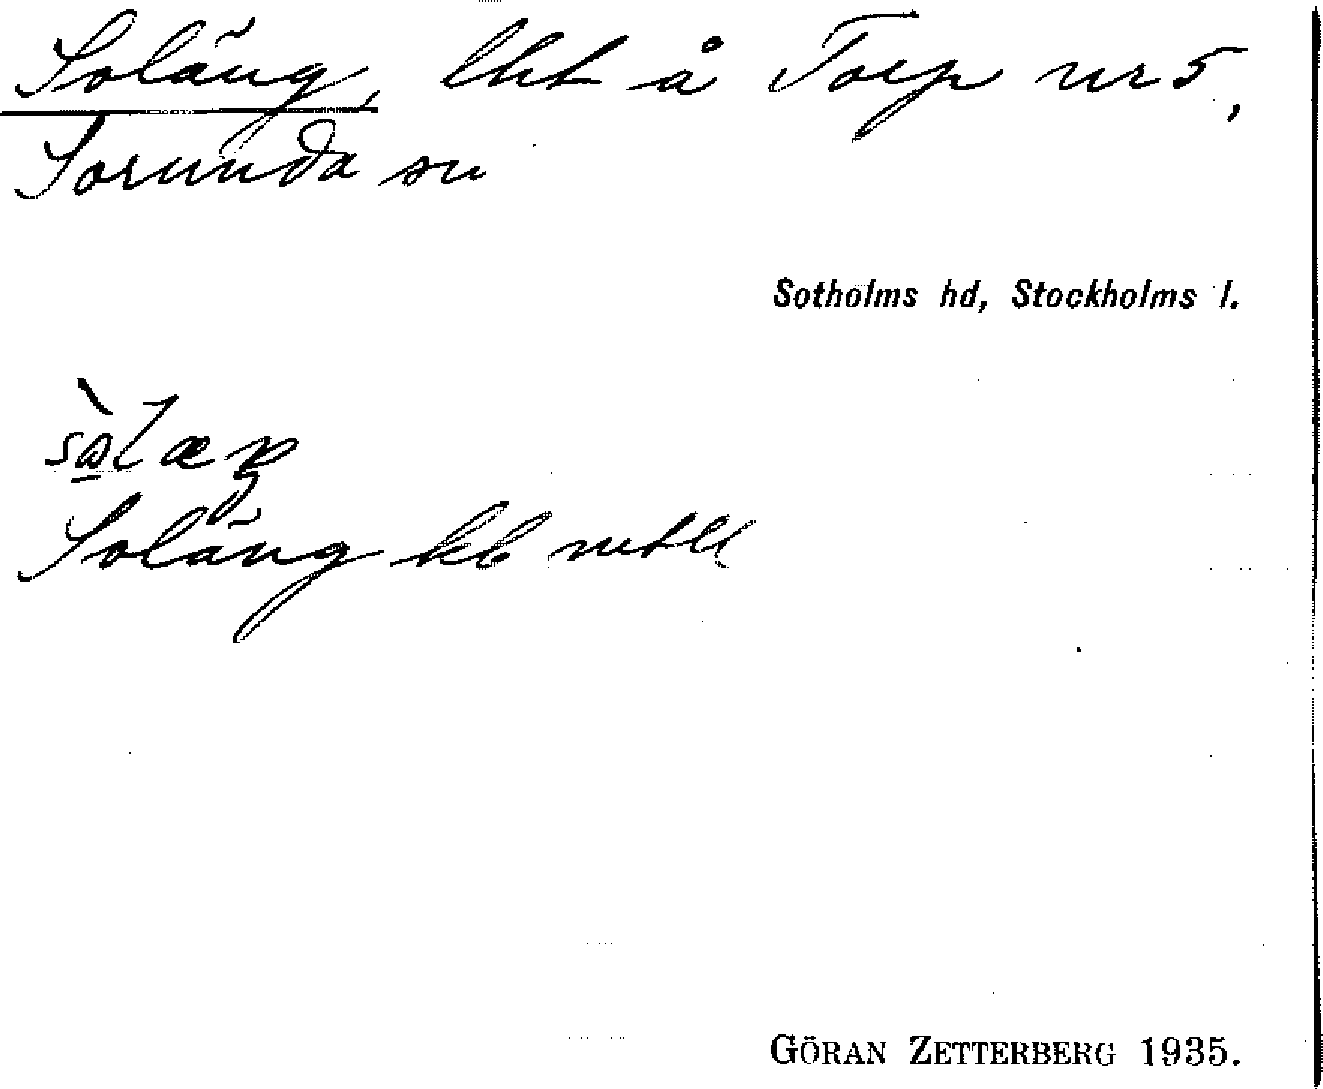 Soläng, lht å Torp nr 5,
Sorunda sn
Sotholms hd, Stockholms l.
Soläng kb mtll
GÖRAN ZETTERBERG 1935.